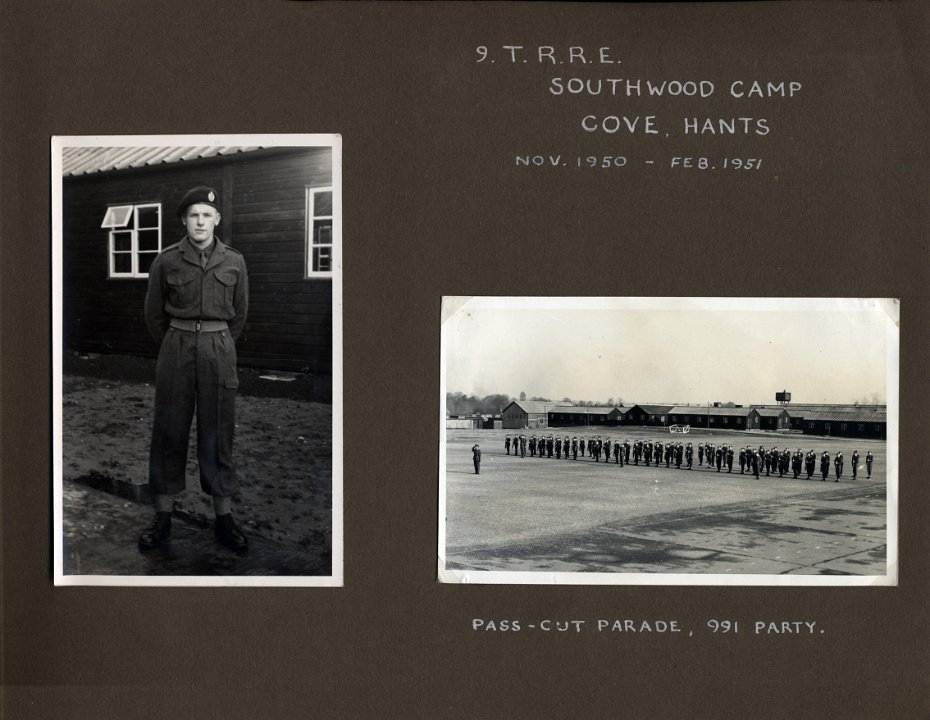 9. T. R. R. E.
SOUTHWOOD CAMP
COVE, HANTS
NOV. 1950 - FEB. 1951
PASS-OUT PARADE, 991 PARTY.